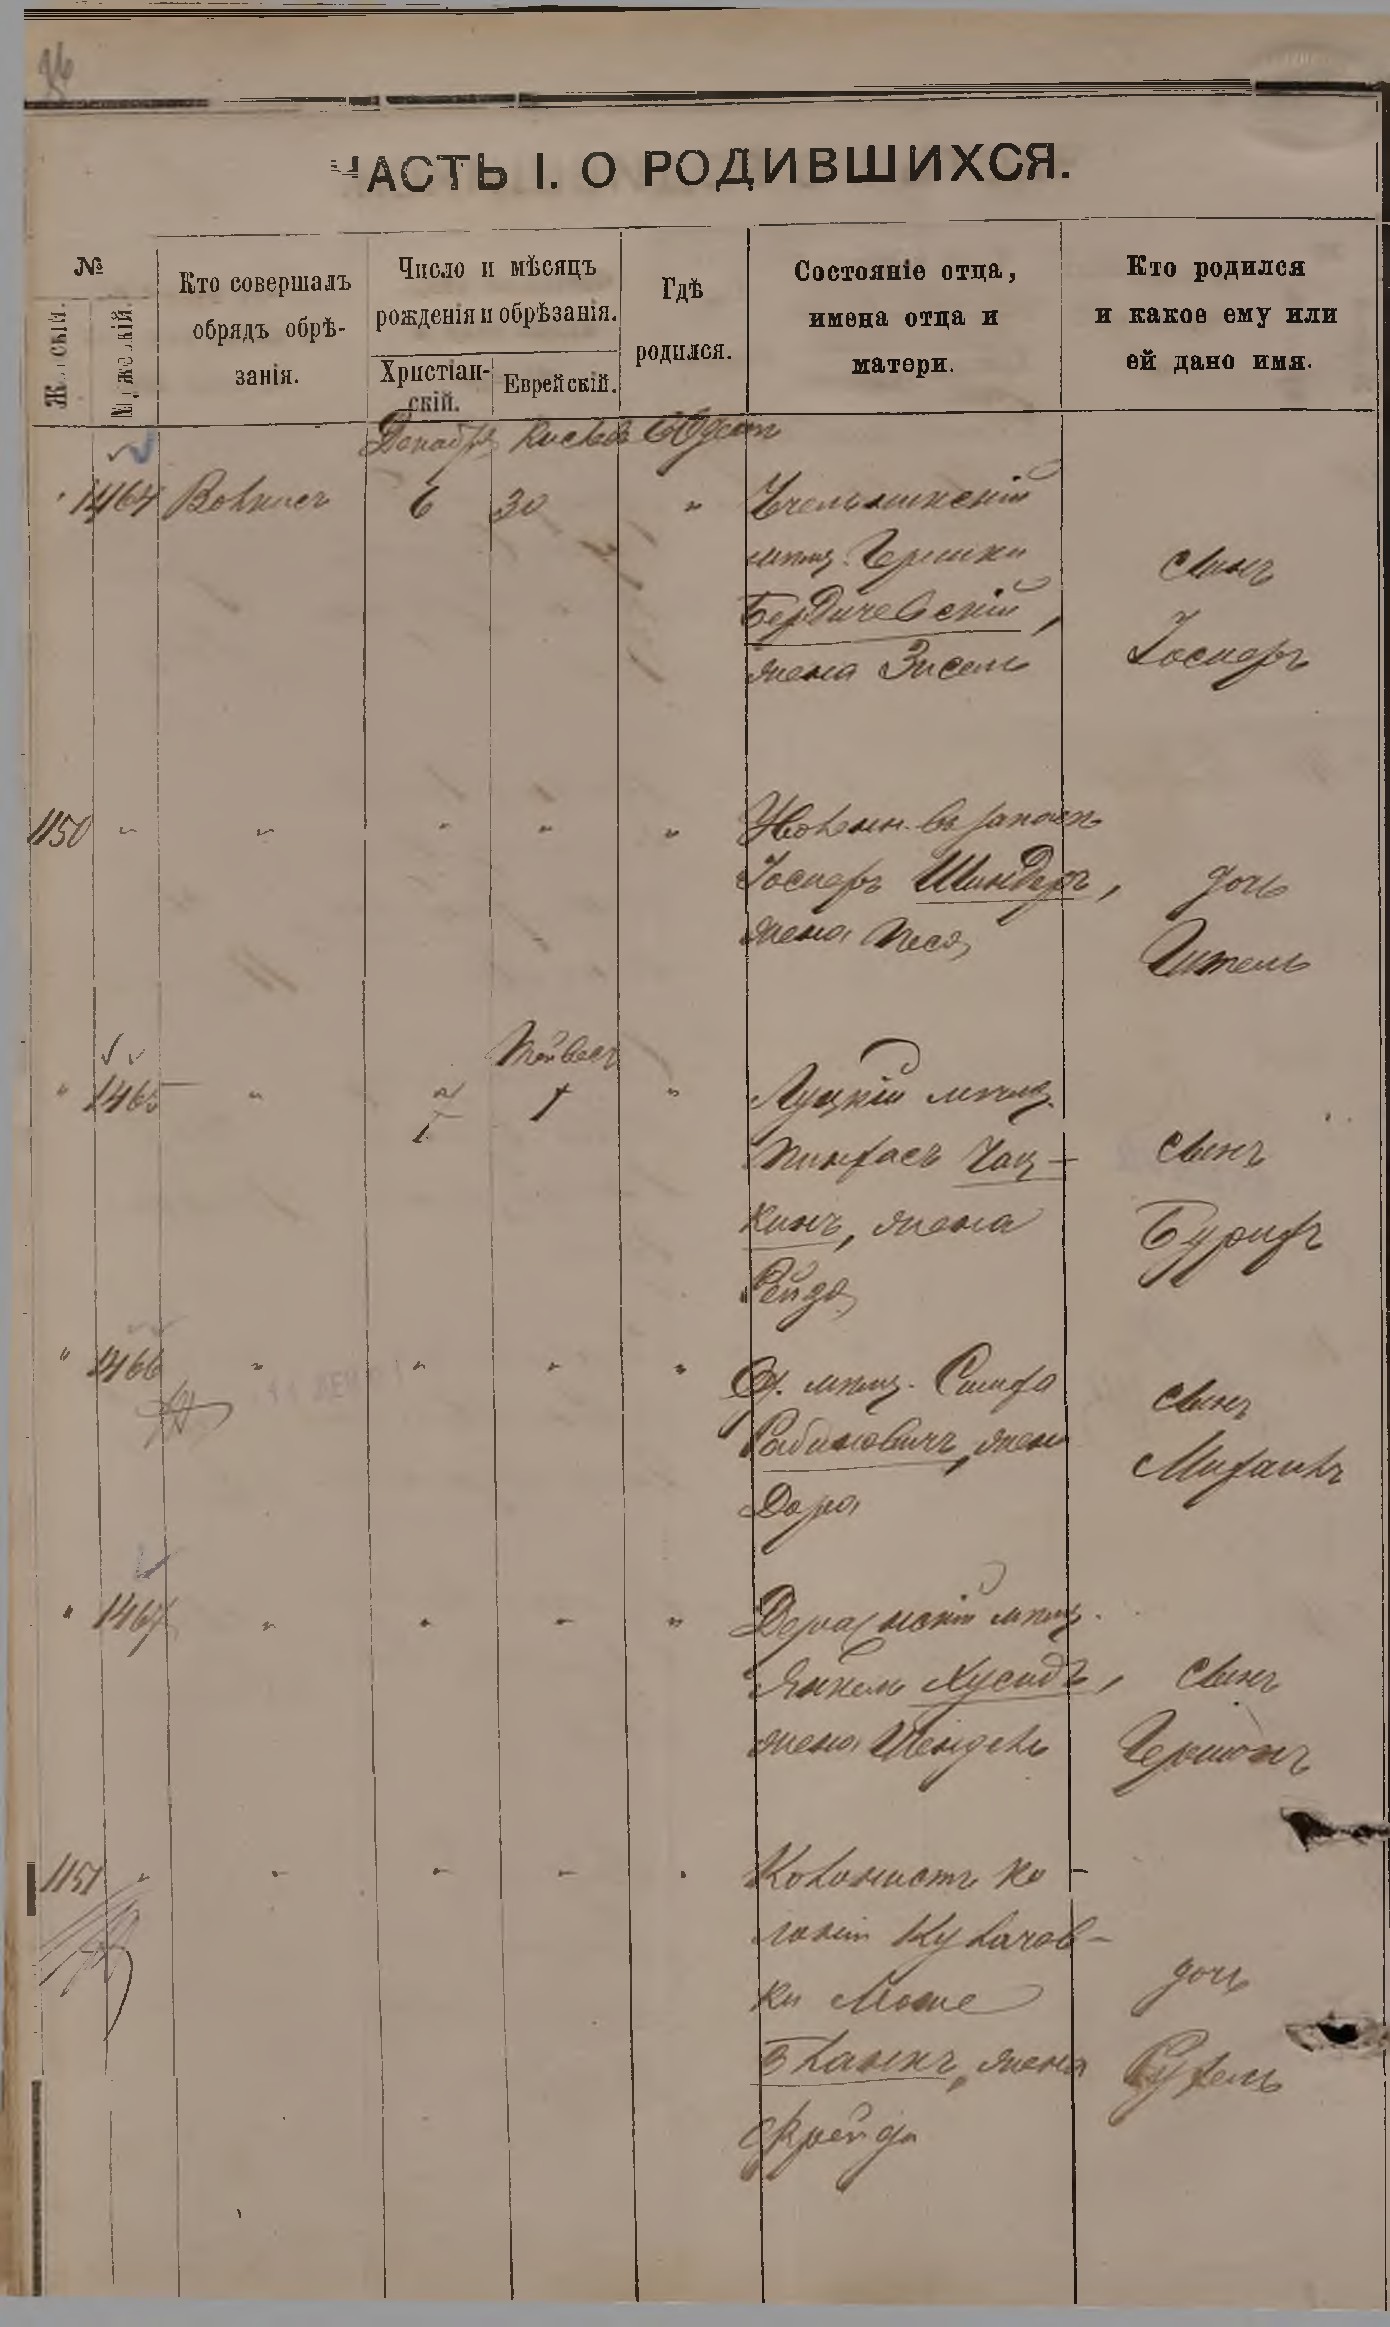 ЧАСТЬ I. О РОДИВШИХСЯ.
№
Женскій.
Мужескій.
Кто совершалъ
обрядъ обрѣ-
занія.
Число и мѣсяцъ
рожденія и обрѣзанія.
Христіан-
скій.
Еврейскій.
Гдѣ
родился.
Состояніе отца,
имена отца и
матери.
Кто родился
и какое ему или
ей дано имя.
Декабря Кислевъ Одесса
" 1464 6 30 "
мѣщ. Гершки
Бердичевскій,
жена Зисель
сынъ
Іосифъ
1150 " " " " "
Уволен. въ запасъ
Іосифъ Шиндеръ,
жена Песя
дочь
Гитель
Тейвесъ
" 1465 " 7 1 "
Луцкій мѣщ.
Пинхасъ Чац-
кинъ, жена
Рейзя
сынъ
" 1466 " " " "
Од. мѣщ. Симха
Рабиновичъ, жена
Дора
сынъ
Михаилъ
" 1467 " " " "
мѣщ.
Янкель Хусидъ,
жена Шендель
сынъ
Гершонъ
1151 " " " " "
Колонистъ ко-
лоніи Кулачов-
ки Моше
жена
Фрейда
дочь
Рухель